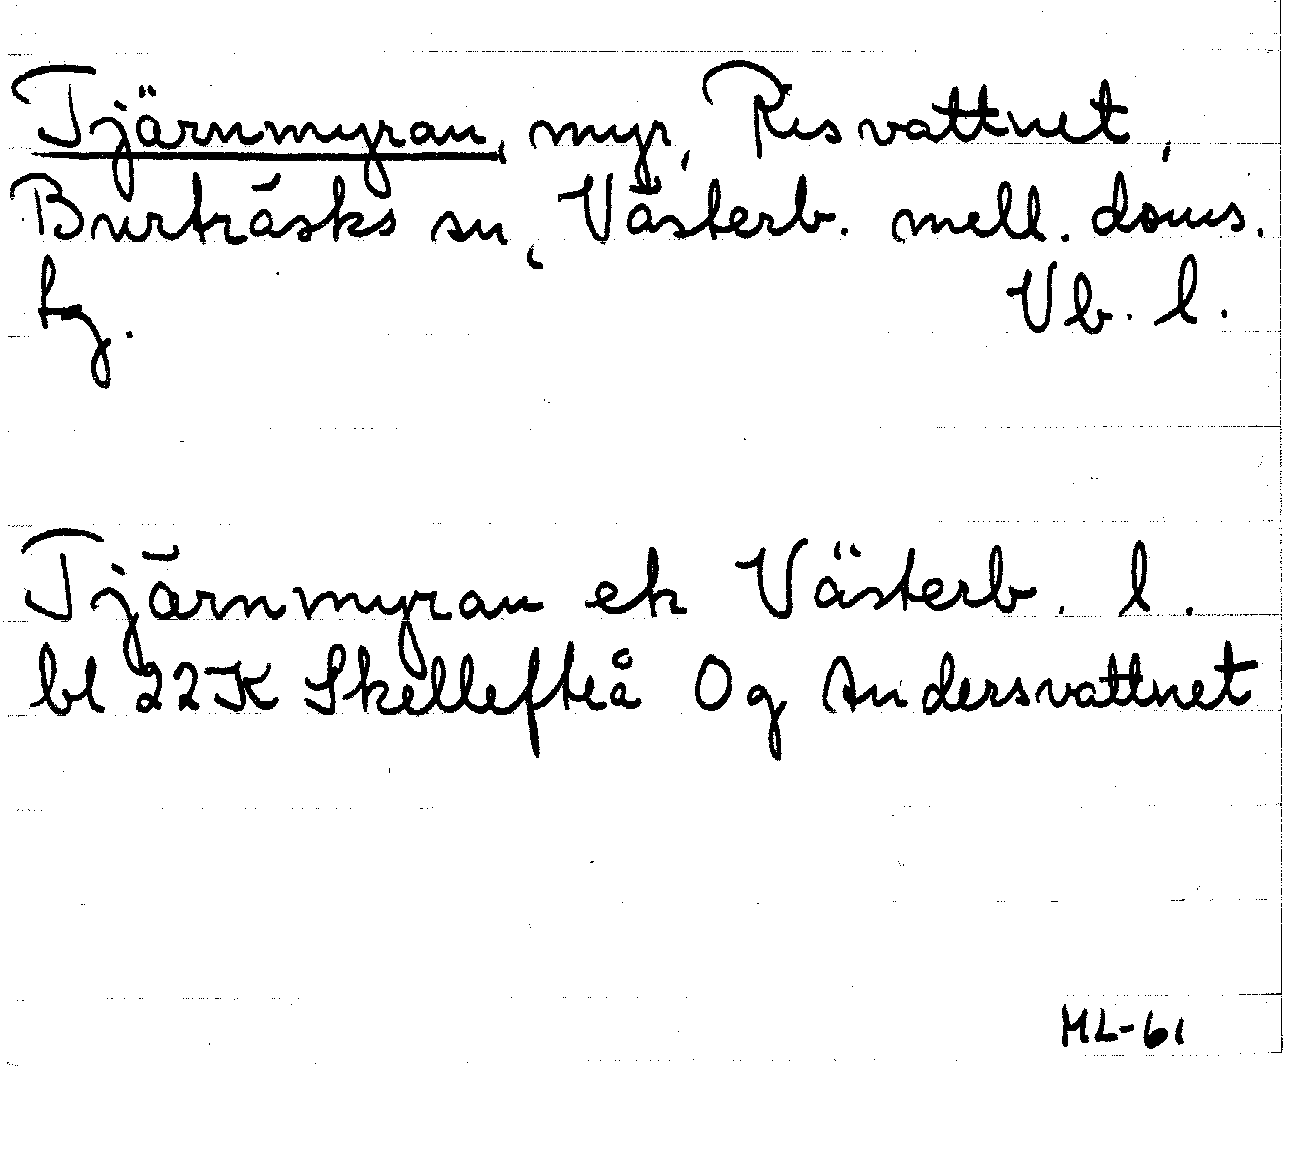 Tjärnmyran, myr, Risvattnet,
Burträsks sn, Västerb. mell. doms.
tg. Vb. l.
Tjärnmyran ek Västerb. l.
bl 22K Skellefteå Og Andersvattnet
ML-61